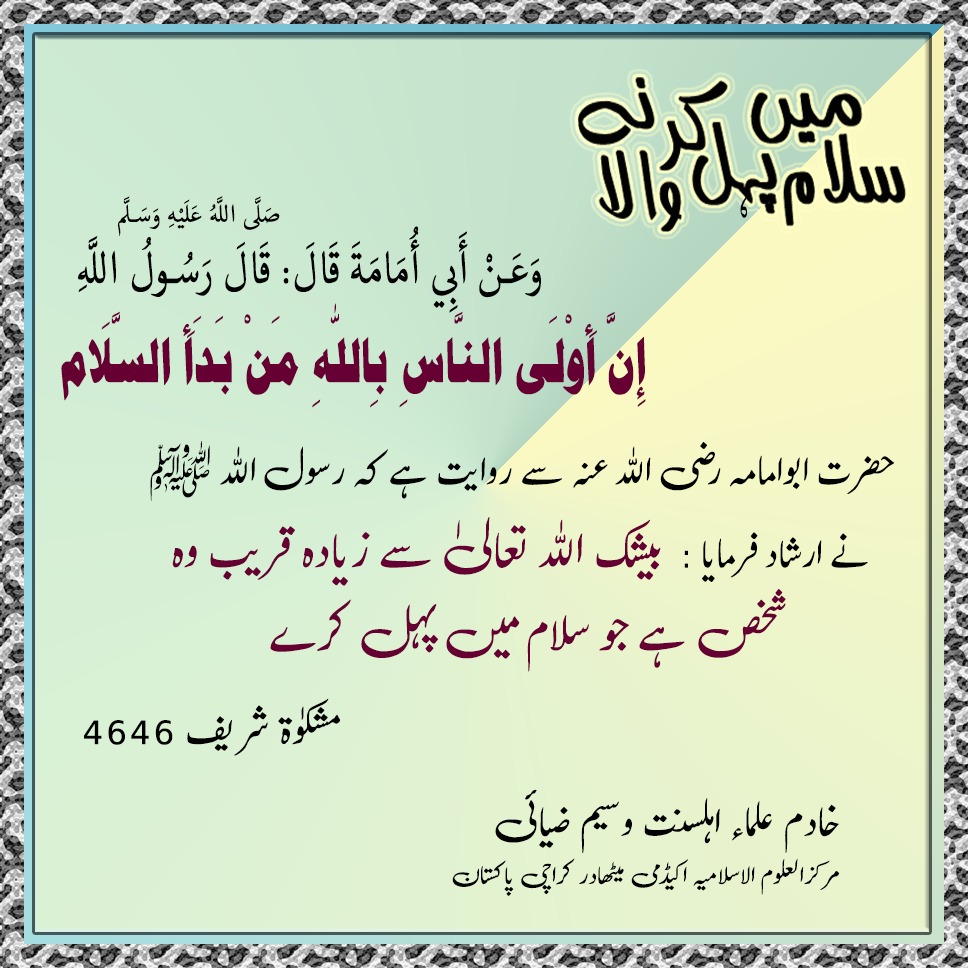 سلام میں پہل کرنے والا
صَلَّى اللَّهُ عَلَيْهِ وَسَلَّم
وَعَنْ أَبِي أُمَامَةَ قَالَ: قَالَ رَسُولُ اللَّهِ
إِنَّ أَوْلَى النَّاسِ بِاللهِ مَنْ بَدَأَ السَّلَام
حضرت ابوامامہ رضی اللہ عنہ سے روایت ہے کہ رسول اللہ ﷺ
نے ارشاد فرمایا : بیشک اللہ تعالیٰ سے زیادہ قریب وہ
شخص ہے جو سلام میں پہل کرے
مشکوٰۃ شریف 4646
خادم علماء اہلسنت وسیم ضیائی
مرکزالعلوم الاسلامیہ اکیڈمی میٹھادر کراچی پاکستان